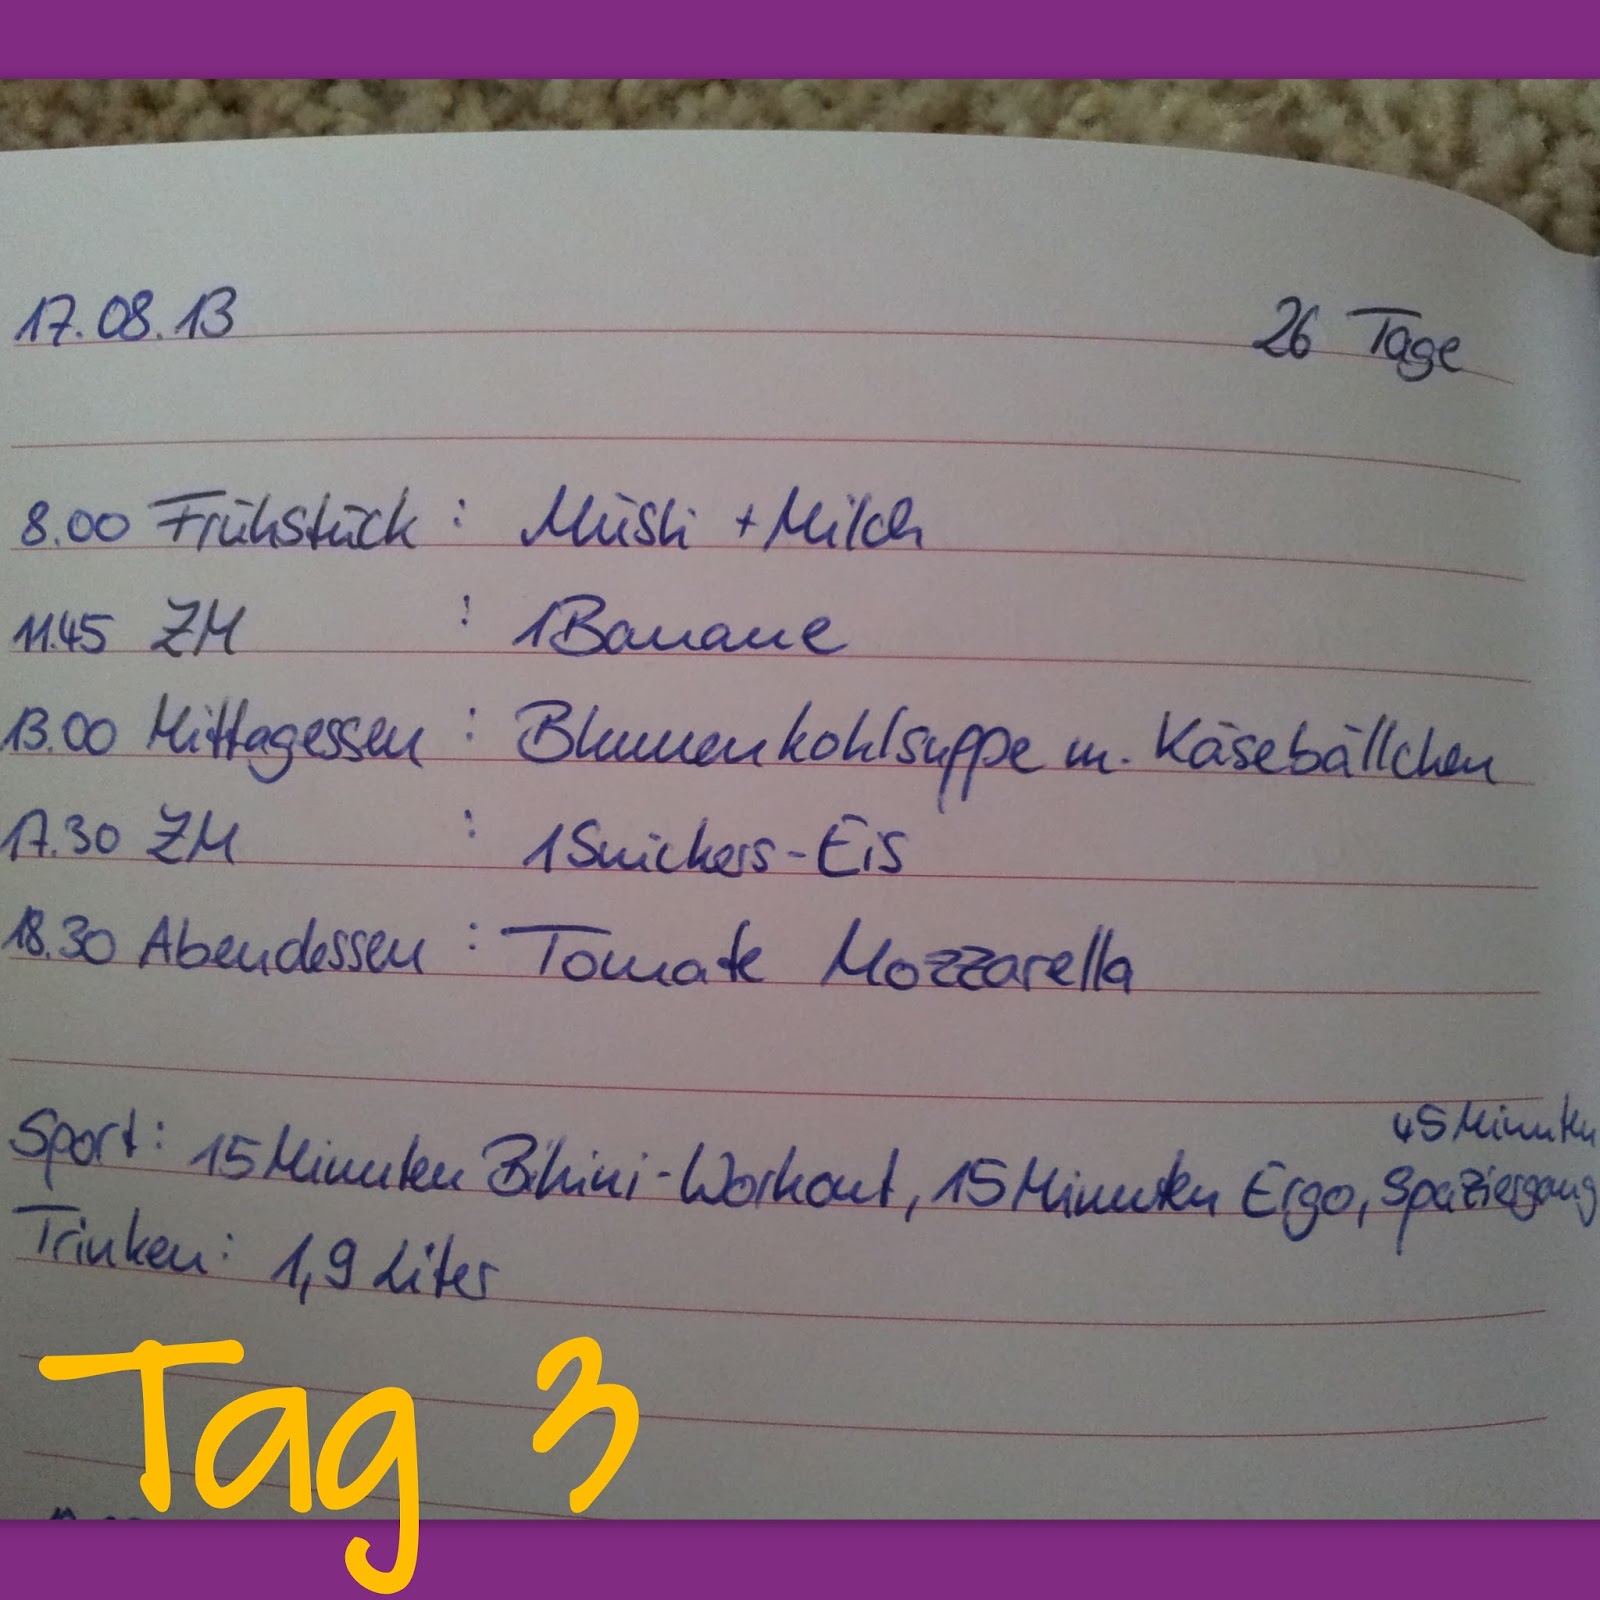 17.08.13 26 Tage
8.00 Frühstück : Müsli + Milch
11.45 ZM : 1 Banane
13.00 Mittagessen : Blumenkohlsuppe m. Käsebällchen
17.30 ZM : 1 Snickers-Eis
18.30 Abendessen : Tomate Mozzarella
45 Minuten
Sport: 15 Minuten Bikini-Workout, 15 Minuten Ergo, Spaziergang
Trinken: 1,9 Liter
Tag 3